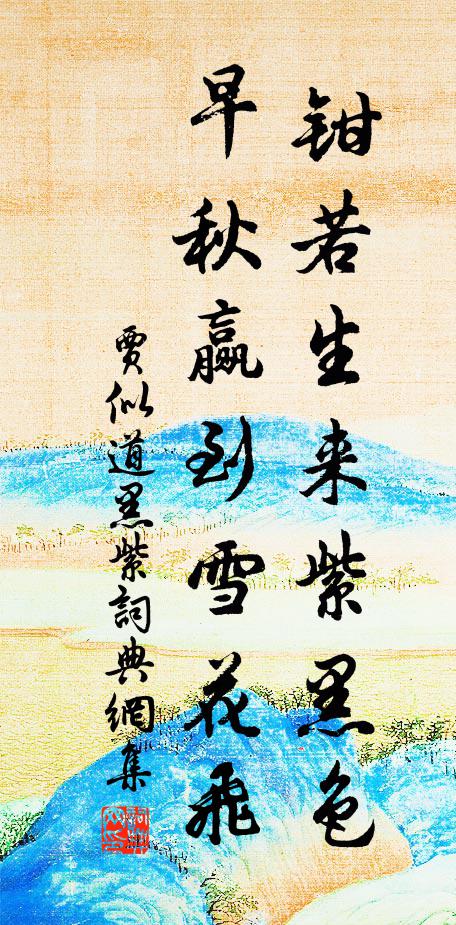 钳若生来紫黑色
早秋赢到雪花飛
賈似道黑紫詞典網集